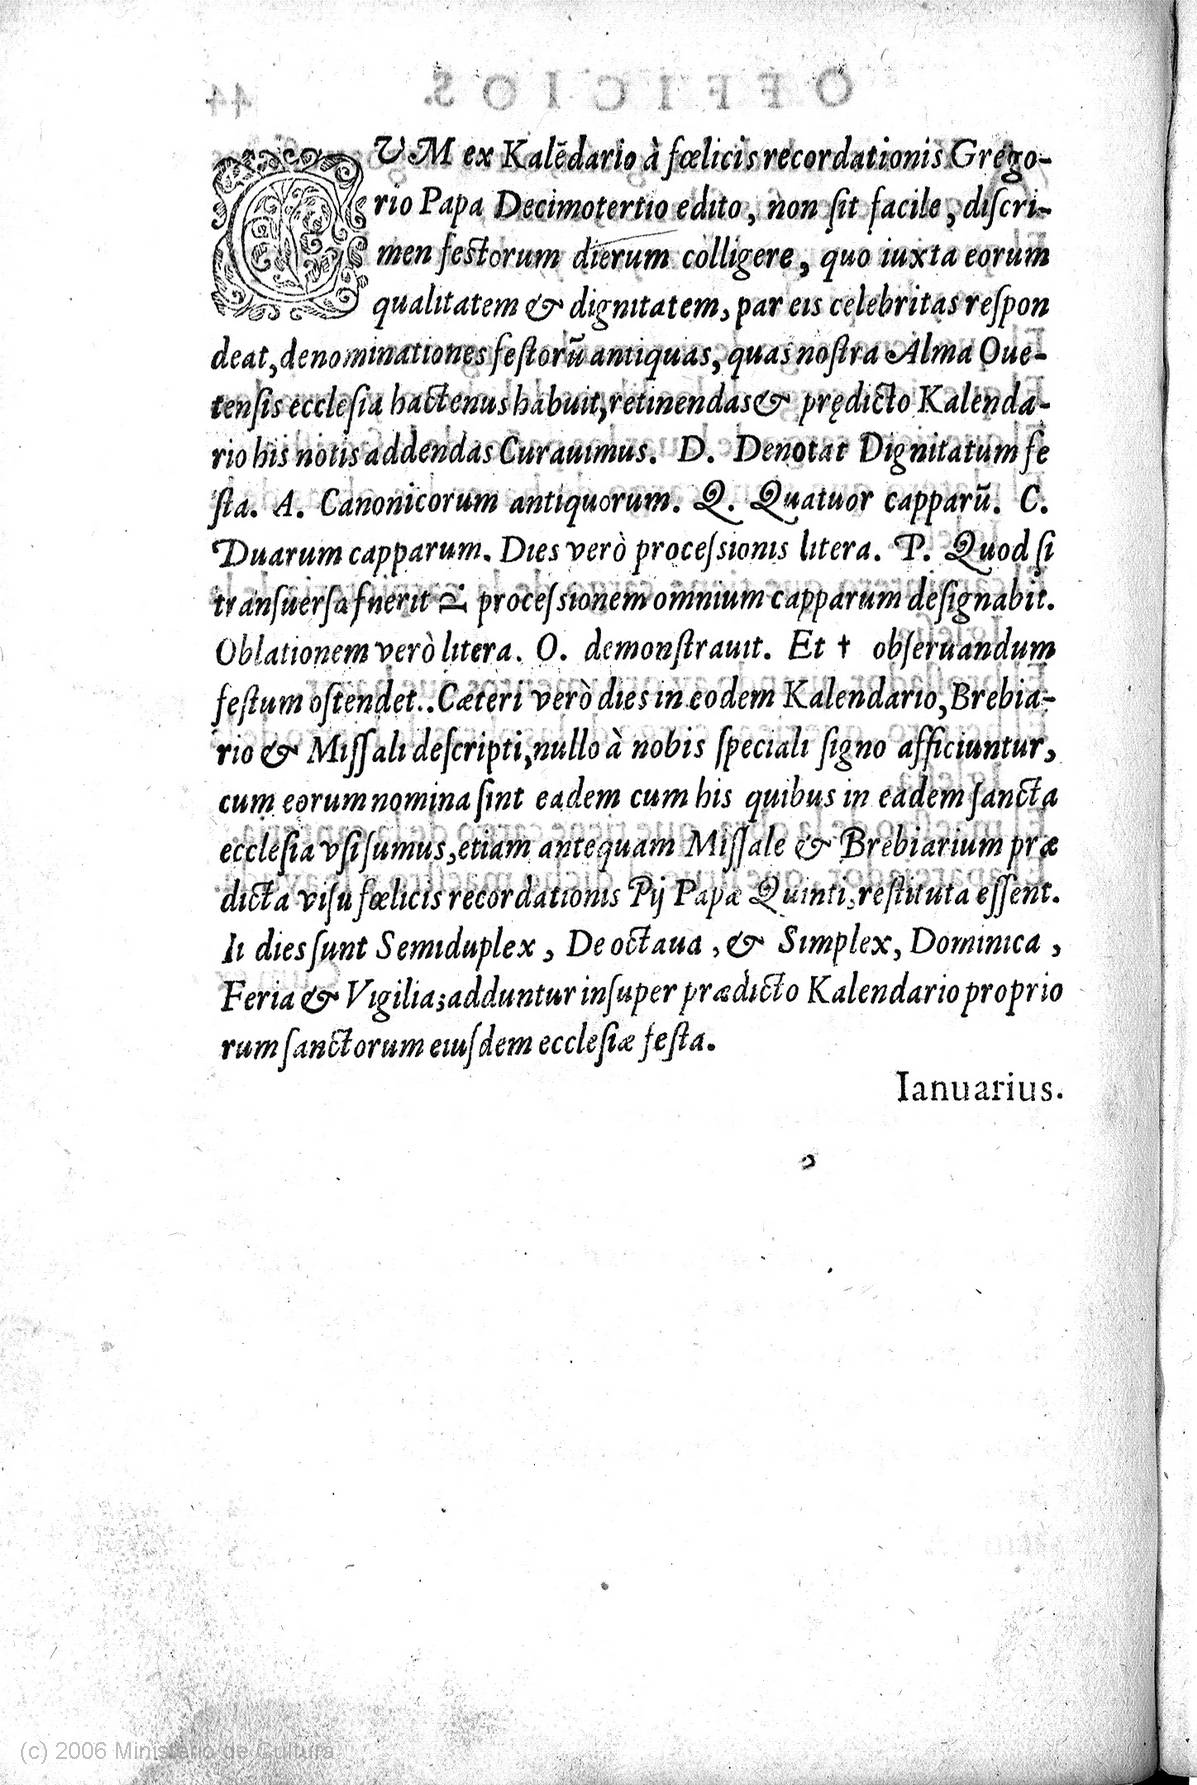 CUM ex Kalēdario à fœlicis recordationis Grego-
rio Papa Decimotertio edito, non ſit facile, diſcri-
men feſtorum dierum colligere, quo iuxta eorum
qualitatem & dignitatem, par eis celebritas reſpon
deat, denominationes feſtorū antiquas, quas noſtra Alma Oue-
tenſis eccleſia hactenus habuit, retinendas & prędicto Kalenda-
rio his notis addendas Curauimus. D. Denotat Dignitatum fe
ſta. A. Canonicorum antiquorum. Q. Quatuor capparū. C.
Duarum capparum. Dies verò proceſsionis litera. P. Quod ſi
tranſuerſa fuerit P proceſsionem omnium capparum deſignabit.
Oblationem verò litera. O. demonſtrauit. Et † obſeruandum
feſtum oſtendet.. Cæteri verò dies in eodem Kalendario, Brebia-
rio & Miſſali deſcripti, nullo à nobis ſpeciali ſigno afficiuntur,
cum eorum nomina ſint eadem cum his quibus in eadem ſancta
eccleſia vſi ſumus, etiam antequam Miſſale & Brebiarium præ
dicta viſu fœlicis recordationis Pij Papæ Quinti, reſtituta eſſent.
Ii dies ſunt Semiduplex, De octaua, & Simplex, Dominica,
Feria & Vigilia; adduntur inſuper prædicto Kalendario proprio
rum ſanctorum eiuſdem eccleſiæ feſta.
Ianuarius.
(c) 2006 Ministerio de Cultura